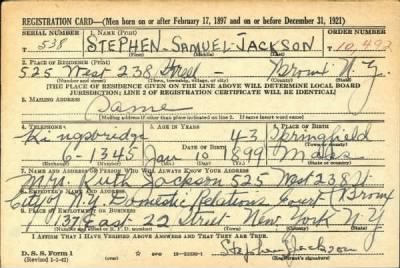 REGISTRATION CARD—(Men born on or after February 17, 1897 and on or before December 31, 1921)
SERIAL NUMBER 1. NAME (Print) ORDER NUMBER
538 STEPHEN SAMUEL JACKSON T 10,492
2. PLACE OF RESIDENCE (Print)
525 West 238 Street - Bronx N.Y.
(Number and street) (Town, township, village, or city) (County) (State)
[THE PLACE OF RESIDENCE GIVEN ON THE LINE ABOVE WILL DETERMINE LOCAL BOARD
JURISDICTION; LINE 2 OF REGISTRATION CERTIFICATE WILL BE IDENTICAL]
3. MAILING ADDRESS
Same
(Mailing address if other than place indicated on line 2. If same insert word same)
4. TELEPHONE 5. AGE IN YEARS 6. PLACE OF BIRTH
Kingsbridge 43 Springfield
6-1345 Jan 10 1899 Mass
7. NAME AND ADDRESS OF PERSON WHO WILL ALWAYS KNOW YOUR ADDRESS
Mrs. Ruth Jackson 525 West 238 St
8. EMPLOYER'S NAME AND ADDRESS
City of N.Y. Domestic Relations Court (Bronx
9. PLACE OF EMPLOYMENT OR BUSINESS
137 East 22 Street New York N Y
(Number and street or R. F. D. number) (Town) (County) (State)
I AFFIRM THAT I HAVE VERIFIED ABOVE ANSWERS AND THAT THEY ARE TRUE.
Stephen Jackson
D. S. S. Form 1
(Revised 1-1-42) (over)